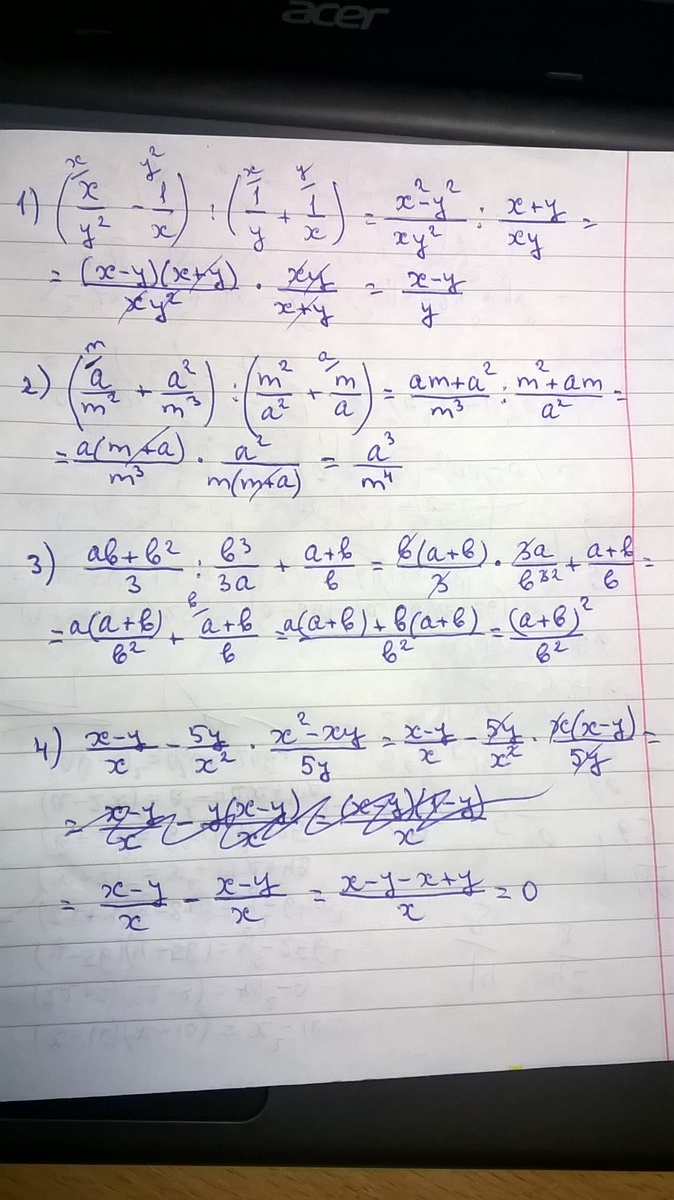 acer
1) (x/y² - 1/x) : (1/y + 1/x) = (x²-y²)/(xy²) : (x+y)/(xy) =
= ((x-y)(x+y))/(xy²) · (xy)/(x+y) = (x-y)/y
2) (a/m² + a²/m³) : (m²/a² + m/a) = (am+a²)/m³ : (m²+am)/a² =
= (a(m+a))/m³ · a²/(m(m+a)) = a³/m⁴
3) (aв+в²)/3 : в³/(3a) + (a+в)/в = (в(a+в))/3 · (3a)/в³² + (a+в)/в =
= (a(a+в))/в² + (a+в)/в = (a(a+в)+в(a+в))/в² = (a+в)²/в²
4) (x-y)/x - (5y)/x² · (x²-xy)/(5y) = (x-y)/x - (5y)/x² · (x(x-y))/(5y) =
= (x-y)/x - (y(x-y))/x = ((x-y)(1-y))/x
= (x-y)/x - (x-y)/x = (x-y-x+y)/x = 0